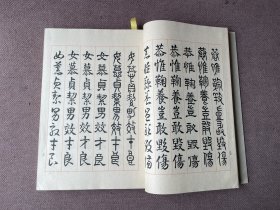 恭惟鞠養豈敢毀傷
恭惟鞠養豈敢毀傷
恭惟鞠養豈敢毀傷
恭惟鞠養豈敢毀傷
恭惟鞠養豈敢毀傷
女慕貞絜男效才良
女慕貞絜男效才良
女慕貞絜男效才良
女慕貞絜男效才良
女慕貞絜男效才良